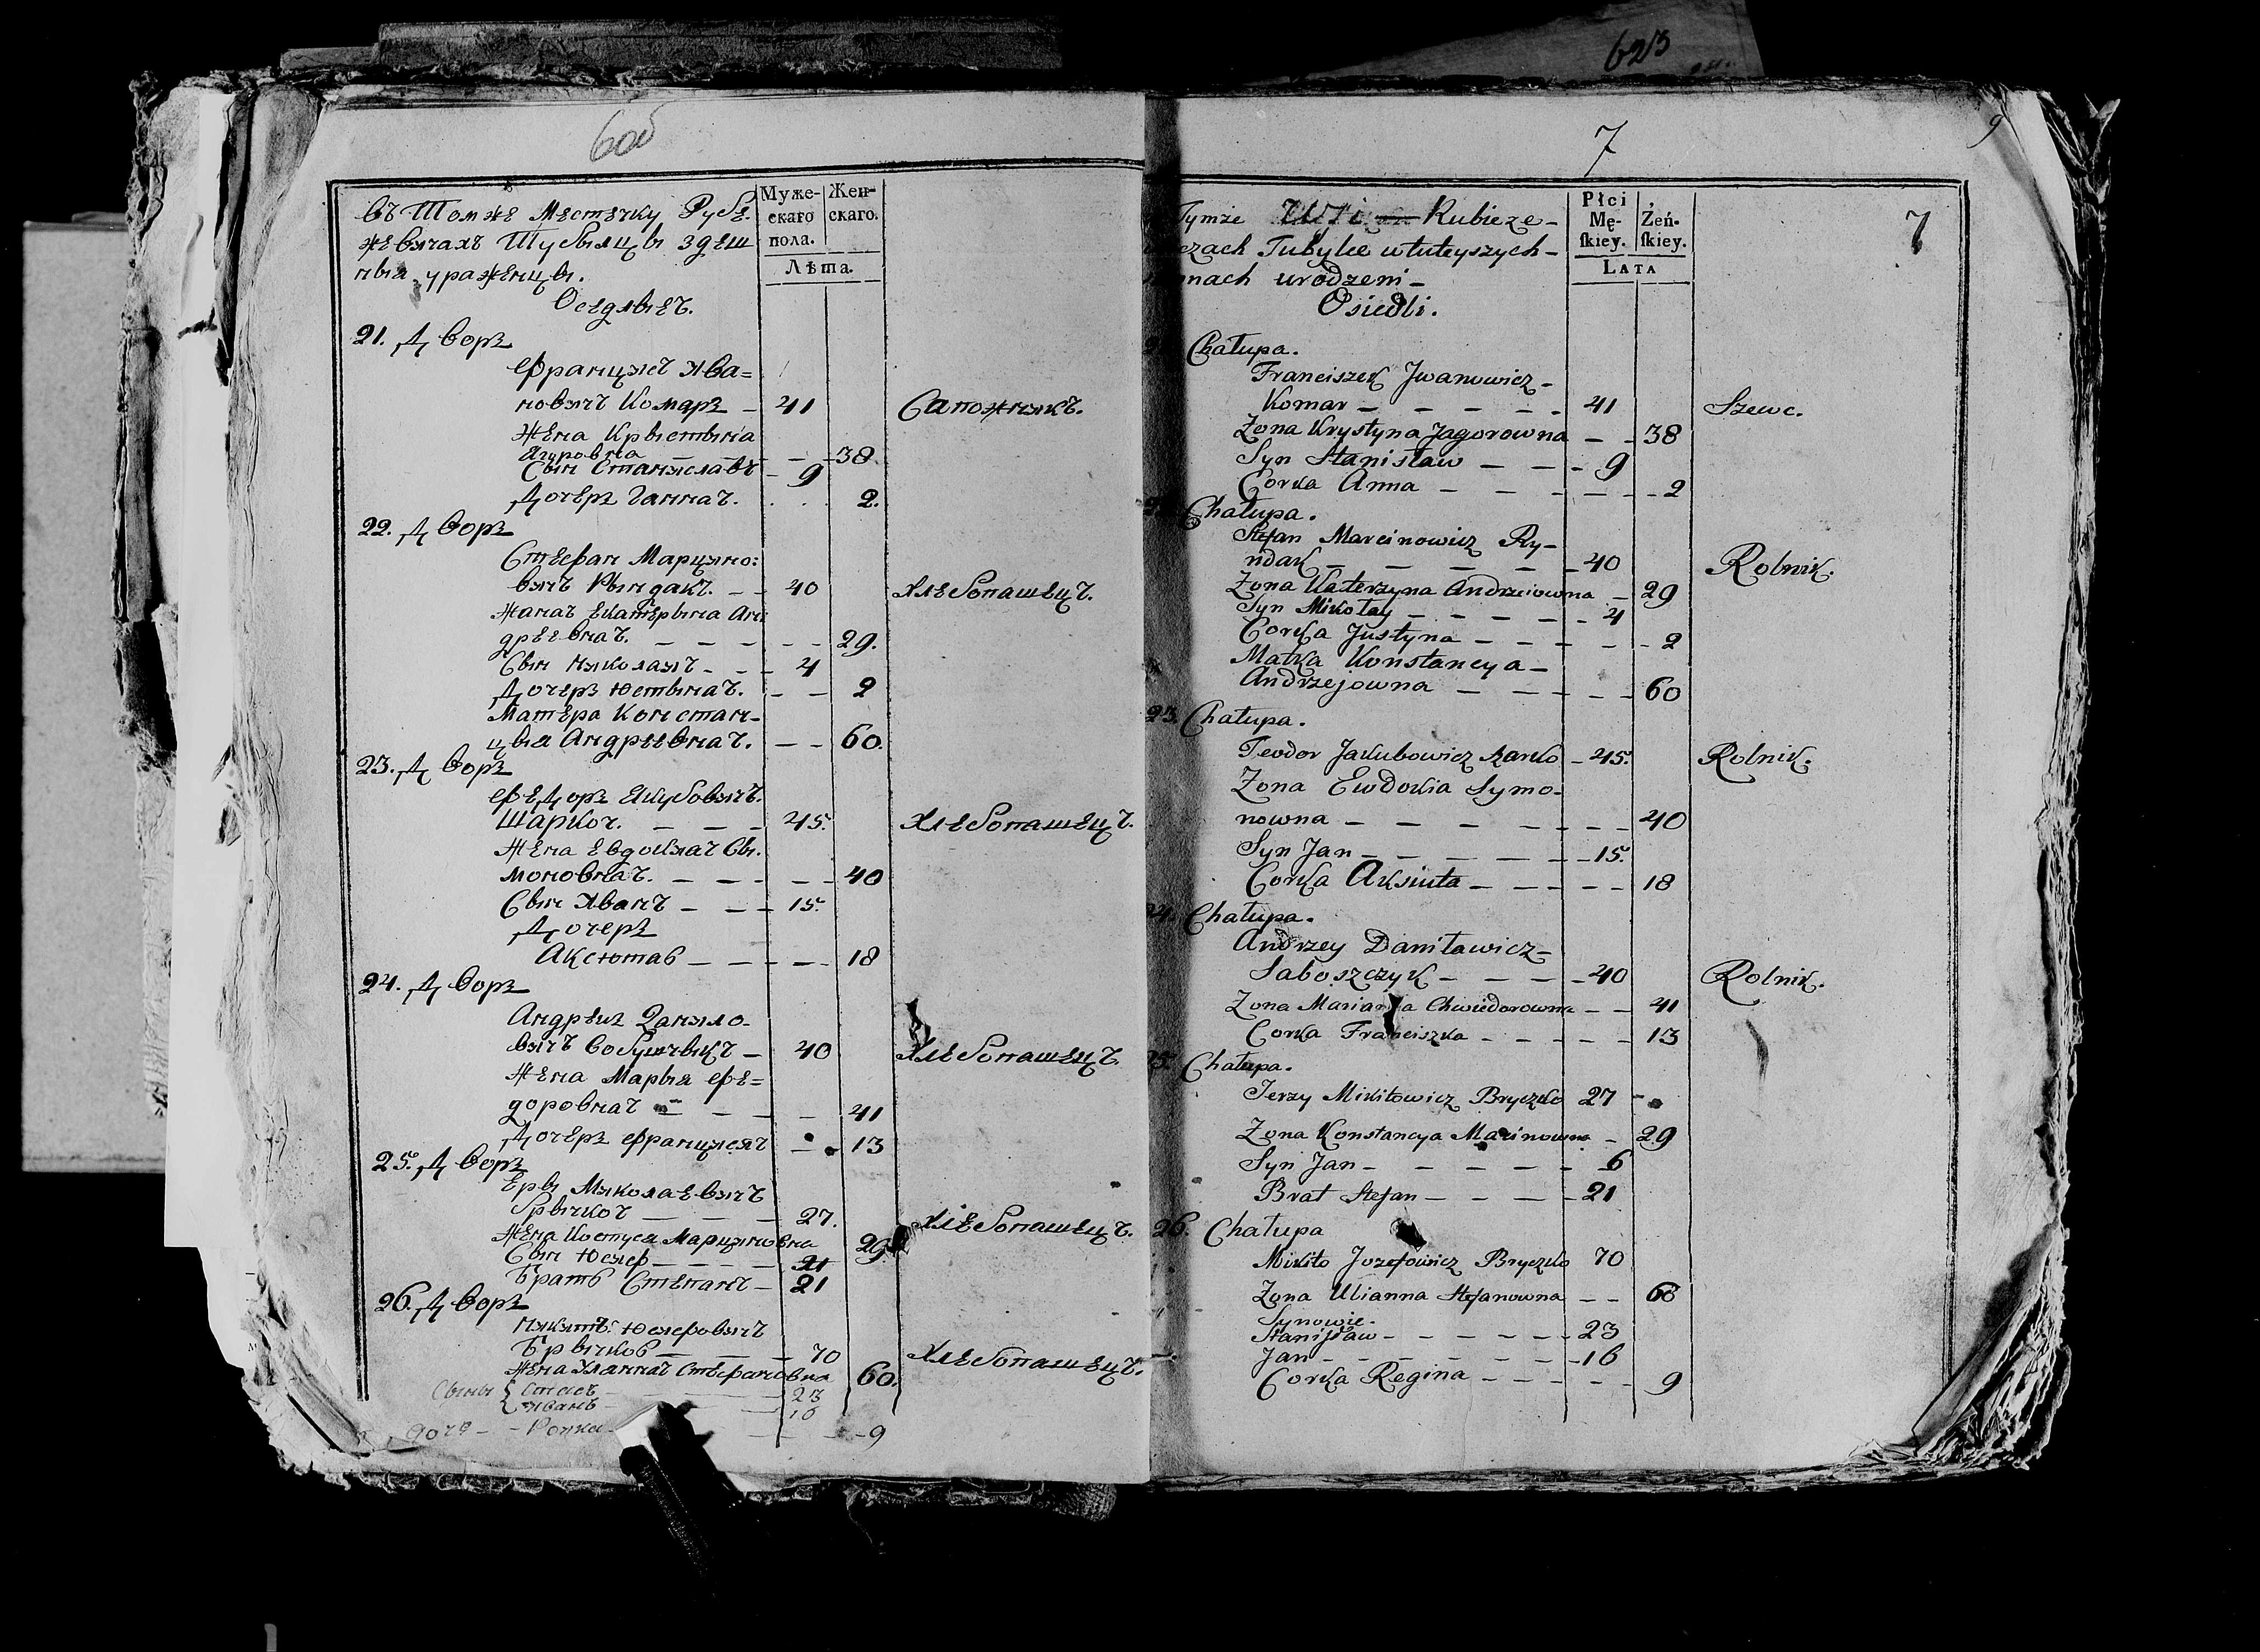 623
6об
въ Томже Местечку Рубе-
жевичахъ Тубылцы здеш
ныя ураженцы.
Оседлыеъ.
Муже-
скаго
пола.
Жен-
скаго.
Лѣта.
21. Дворъ
Францишъ Ива=
новичъ Комаръ – 41 Сапожникъ.
Жена Крыстына
Ягоровна – – 38
Сын Станиславъ – 9
Дочеръ Ганнаъ. 2.
22. Дворъ
Стефан Марцино:
вичъ Рындакъ. – – 40 Хлебопашецъ.
Жанаъ Екатерына Ан:
дреевнаъ. – – – – – 29.
Сын Николайъ – – – 4
Дочеръ Юстынаъ. – – 2
Матера Констан-
цыя Андреевнаъ. – – 60.
23. Дворъ
Федоръ Якубовичъ.
Шаркоъ. – – – 45. Хлебопашецъ.
Жена Евдокияъ Сы.
моновнаъ. – – – – – 40
Сын Иванъ – – – 15.
Дочеръ
Аксютаь – – – – – 18
24. Дворъ
Андреи Данило-
вичъ – 40 Хлебопашецъ.
Жена Марыя Фе=
доровнаъ – – – – 41
Дочеръ – – 13
25. Дворъ
Еры Миколаевичъ
Брычкоъ – – – 27. Хлебопашецъ.
Жена Костуся Марциновна 29
Сын Юзеф – – – –
Братъ Степанъ – 21
26. Дворъ
Юзефовичъ
Брычкоь – – – 70 Хлебопашецъ.
Жена Ульянаъ Стефановна 60.
Сыны – 23
Иванъ – 16
доче – – 9
7
9
7
Tymże Rubieże-
czach Tubylce w tuteyszych –
nach urodzeni –
Osiedli.
Płci
Mę-
skiey.
Żeń-
skiey.
Lata
Chałupa.
Franciszek Jwanowicz –
Komar – – – – – 41 Szewc.
Żona Krystyna Jagorowna – – 38
Syn Stanisław – – – 9
Corka Anna – – – – – 2
Chałupa.
Stefan Marcinowicz Ry-
ndak – – – – – 40 Rolnik.
Żona Katerzyna Andrzeiowna – 29
Syn Mikołay – – – – – 4
Corka Justyna – – – – – 2
Matka Konstancya –
Andrzejowna – – – – – 60
23. Chałupa.
Teodor Jakubowicz Szarko – 45. Rolnik.
Żona Ewdokia Symo-
nowna – – – – – – 40
Syn Jan – – – – – 15.
Corka Aksiuta – – – – – 18
24. Chałupa.
Andrzey Daniławicz –
Saboszczyk – – – – 40 Rolnik.
Żona Marianna Chwiedorowna – – 41
Corka Franciszka – – – – – 13
25. Chałupa.
Jerzy Mikitowicz Bryczko 27
Żona Konstancya Marcinowna – 29
Syn Jan – – – – – 6
Brat Stefan – – – – 21
26. Chałupa
Mikito Jozefowicz Bryczko 70
Żona Ulianna Stefanowna – – 68
Synowie.
Stanisław – – – – – 23
Jan – – – – – – 16
Corka Regina – – – – – 9